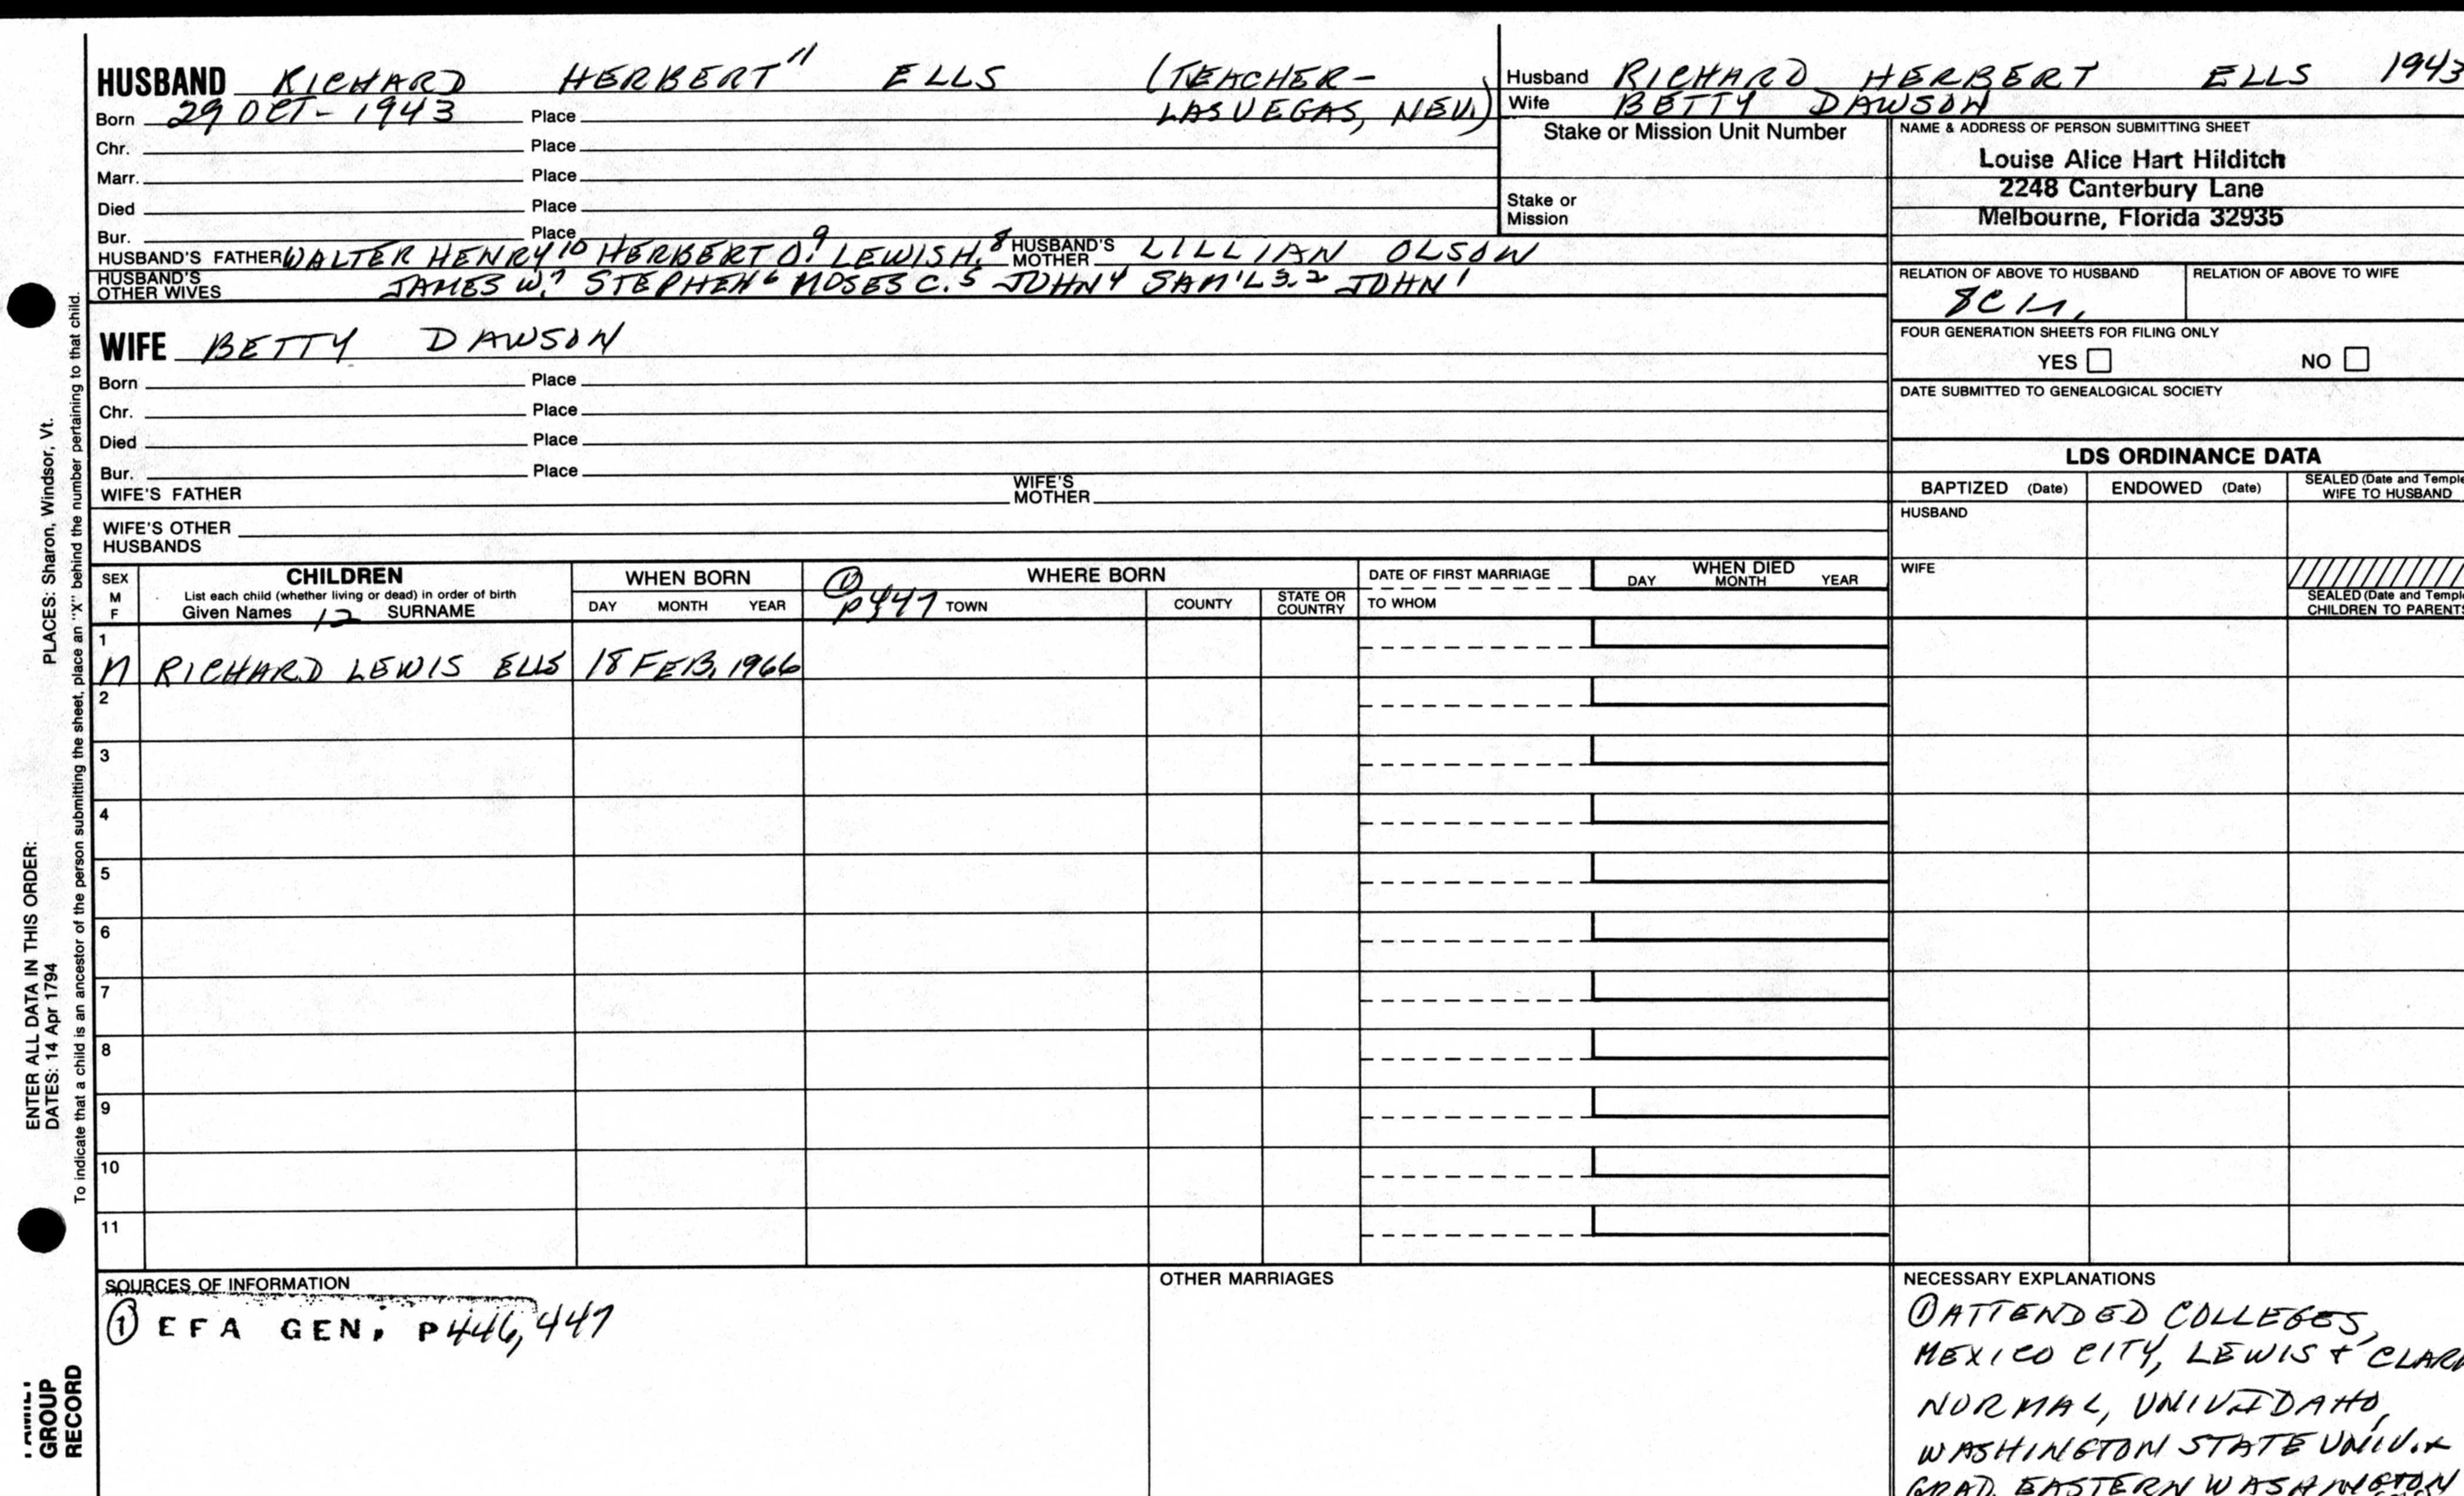 HUSBAND RICHARD HERBERT 11 ELLS (TEACHER-
LAS VEGAS, NEV.)
Born 29 OCT- 1943 Place
Chr. Place
Marr. Place
Died Place
Bur. Place
HUSBAND'S FATHER WALTER HENRY 10 HERBERT O. 9 LEWIS H. 8 HUSBAND'S MOTHER LILLIAN OLSON
HUSBAND'S OTHER WIVES JAMES W. 7 STEPHEN 6 MOSES C. 5 JOHN 4 SAM'L 3.2 JOHN 1
WIFE BETTY DAWSON
Born Place
Chr. Place
Died Place
Bur. Place
WIFE'S FATHER WIFE'S MOTHER
WIFE'S OTHER HUSBANDS
Husband RICHARD HERBERT ELLS 1943
Wife BETTY DAWSON
Stake or Mission Unit Number
Stake or Mission
NAME & ADDRESS OF PERSON SUBMITTING SHEET
Louise Alice Hart Hilditch
2248 Canterbury Lane
Melbourne, Florida 32935
RELATION OF ABOVE TO HUSBAND RELATION OF ABOVE TO WIFE
FOUR GENERATION SHEETS FOR FILING ONLY
YES NO
DATE SUBMITTED TO GENEALOGICAL SOCIETY
LDS ORDINANCE DATA
BAPTIZED (Date) ENDOWED (Date) SEALED (Date and Temple
WIFE TO HUSBAND
HUSBAND
WIFE
SEALED (Date and Temple
CHILDREN TO PARENTS
SEX M F
CHILDREN
List each child (whether living or dead) in order of birth
Given Names 12 SURNAME
WHEN BORN
DAY MONTH YEAR
① P447
WHERE BORN
TOWN COUNTY STATE OR COUNTRY
DATE OF FIRST MARRIAGE
TO WHOM
WHEN DIED
DAY MONTH YEAR
1
M RICHARD LEWIS ELLS 18 FEB. 1966
2
3
4
5
6
7
8
9
10
11
SOURCES OF INFORMATION
① EFA GEN. P446,447
OTHER MARRIAGES
NECESSARY EXPLANATIONS
① ATTENDED COLLEGES,
MEXICO CITY, LEWIS & CLARK
NORMAL, UNIV. IDAHO,
WASHINGTON STATE UNIV. &
GRAD. EASTERN WASHINGTON
PLACES: Sharon, Windsor, Vt.
ENTER ALL DATA IN THIS ORDER:
DATES: 14 Apr 1794
To indicate that a child is an ancestor of the person submitting the sheet, place an "X" behind the number pertaining to that child.
FAMILY
GROUP
RECORD